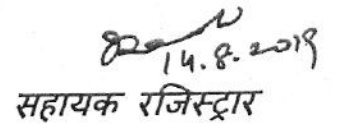 14.8.2019
सहायक रजिस्ट्रार